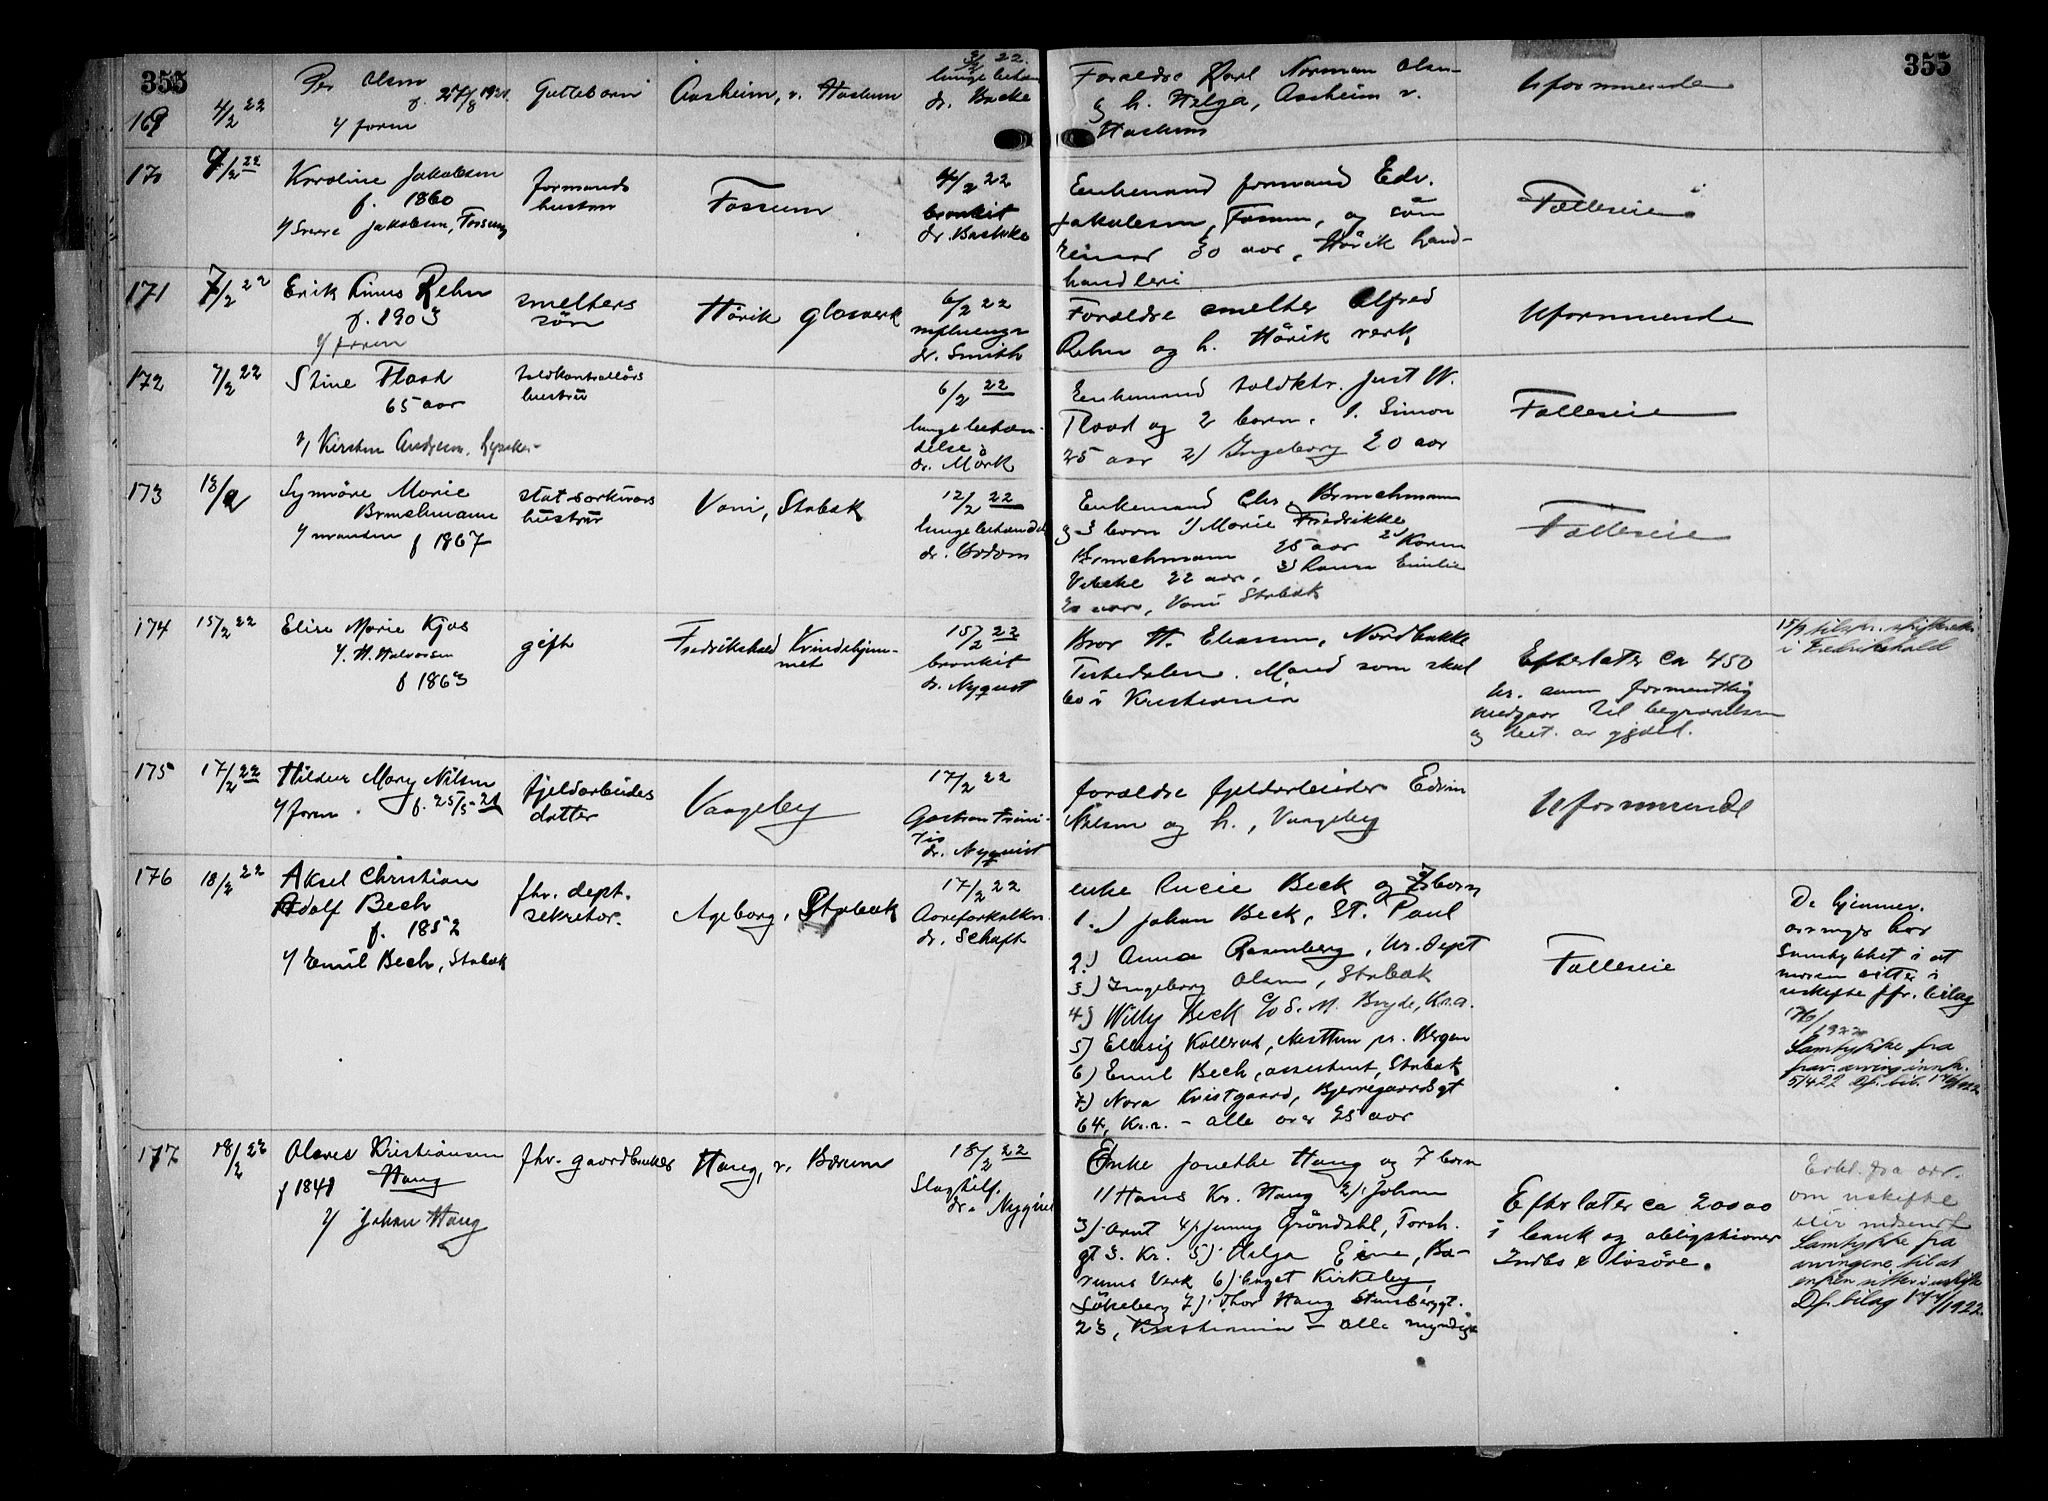 355
355
169
4/2 22
Per Olsen
f. 27/8 1921
v/ faren
Guttebarn
Aasheim, v. Haslum
3/2 22.
dr. Backe
Forældre Karl Norman Olsen
og h. Helga, Aasheim v.
Haslum
Uformuende
170
7/2 22
Karoline Jakobsen
f. 1860
v/ Sverre Jakobsen, Fossum
formands
hustru
Fossum
4/2 22
bronkit
dr. Backke
Enkemand formand Edv.
Jakobsen, Fossum, og søn
Reimar 30 aar, Hövik land-
handleri
Fælleseie
171
7/2 22
Erik Linus Rehn
f. 1903
v/ faren
smelters
søn
Hövik glasverk
6/2 22
influensa
dr. Smith
Forældre smelter Alfred
Rehn og h. Hövik verk,
Uformuende
172
7/2 22
Stine Flood
65 aar
v/ Kirsten Andersen, Lysaker
toldkontrollörs
hustru
6/2 22
lungebetæn-
delse
dr. Mörk
Enkemand toldktr. Just W.
Flood og 2 barn. 1. Simon
25 aar 2/ Ingeborg 20 aar
Fælleseie
173
13/2
Synnöve Marie
Brinchmann
v/ manden f 1867
statsarkivars
hustru
Voni, Stabæk
12/2 22
lungebetændelse
Enkemand Chr. Brinchmann
og 3 barn 1/ Marie Fredrikke
Brinchmann 25 aar 2/ Karen
Vibeke 22 aar, 3/ Laura Emilie
20 aar, Voni Stabæk
Fælleseie
174
15/2 22
Elise Marie Kjos
v/. H. Halvorsen
f 1863
gift
Fredrikshald Kvindehjem-
met
15/2 22
bronkit
dr. Nyquist
Bror H. Eliassen, Nordbakke
Tistedalen. Mand som skal
bo i Kristiania
Efterlater ca 450
kr. som formentlig
medgaar til begravelsen
og bet. av gjæld.
i Fredrikshald
175
17/2 22
Hildur Mary Nilsen
v/ faren. f. 25/5-21
fjeldarbeiders
datter
Vangeby
17/2 22
dr. Nyquist
forældre fjeldarbeider Edvin
Nilsen og h., Vangeby
Uformuende
176
18/2 22
Aksel Christian
Adolf Bech
f. 1852
v/ Emil Bech, Stabæk
fhv. dept.
sekretær.
Ageborg, Stabæk
17/2 22
Aareforkalkn.
dr. Schaft
enke Lucie Beck og 7 barn
1.) Johan Beck, St. Paul
2.) Anna Rosenberg, Ur. Dept
3.) Ingeborg Olsen, Stabæk
4) Willy Beck c/o S. M. Bryde, Kr.a.
5) Ellisif Kollerud, Nesttun pr. Bergen
6) Emil Bech, assistent, Stabæk
7) Nora Kvistgaard, Bjerregaardsgt
64, Kr.a. - alle over 25 aar
Fælleseie
De hjemmev.
arvinger har
samtykket i at
moren sitter i
uskifte jfr. bilag
176/1922
Samtykke fra
5/4 22 Jf. bil. 176/1922
177
18/2 22
Olaves Kristiansen
f 1841 Haug
v/ Johan Haug
fhv. gaardbruker
Haug, v. Bærum
18/2 22
Slagtilf.
dr. Nyquist
Enke Jonette Haug og 7 barn
1/ Hans Kr. Haug 2/ Johan
3/ Arnt 4/ Jenny Gröndahl, Torsh.
gt 3. Kr. 5/ Helga Eine, Bæ-
rums Verk 6/ Laget Kirkeby,
7/ Thor Haug Stensberggt.
23, Kristiania - alle myndige
Efterlater ca 20000
i bank og obligationer
Indbo & lösöre.
Erkl. fra arv.
om uskifte
blir indsendt
Samtykke fra
arvingene til at
enken sitter i uskifte
Jf. bilag 177/1922.